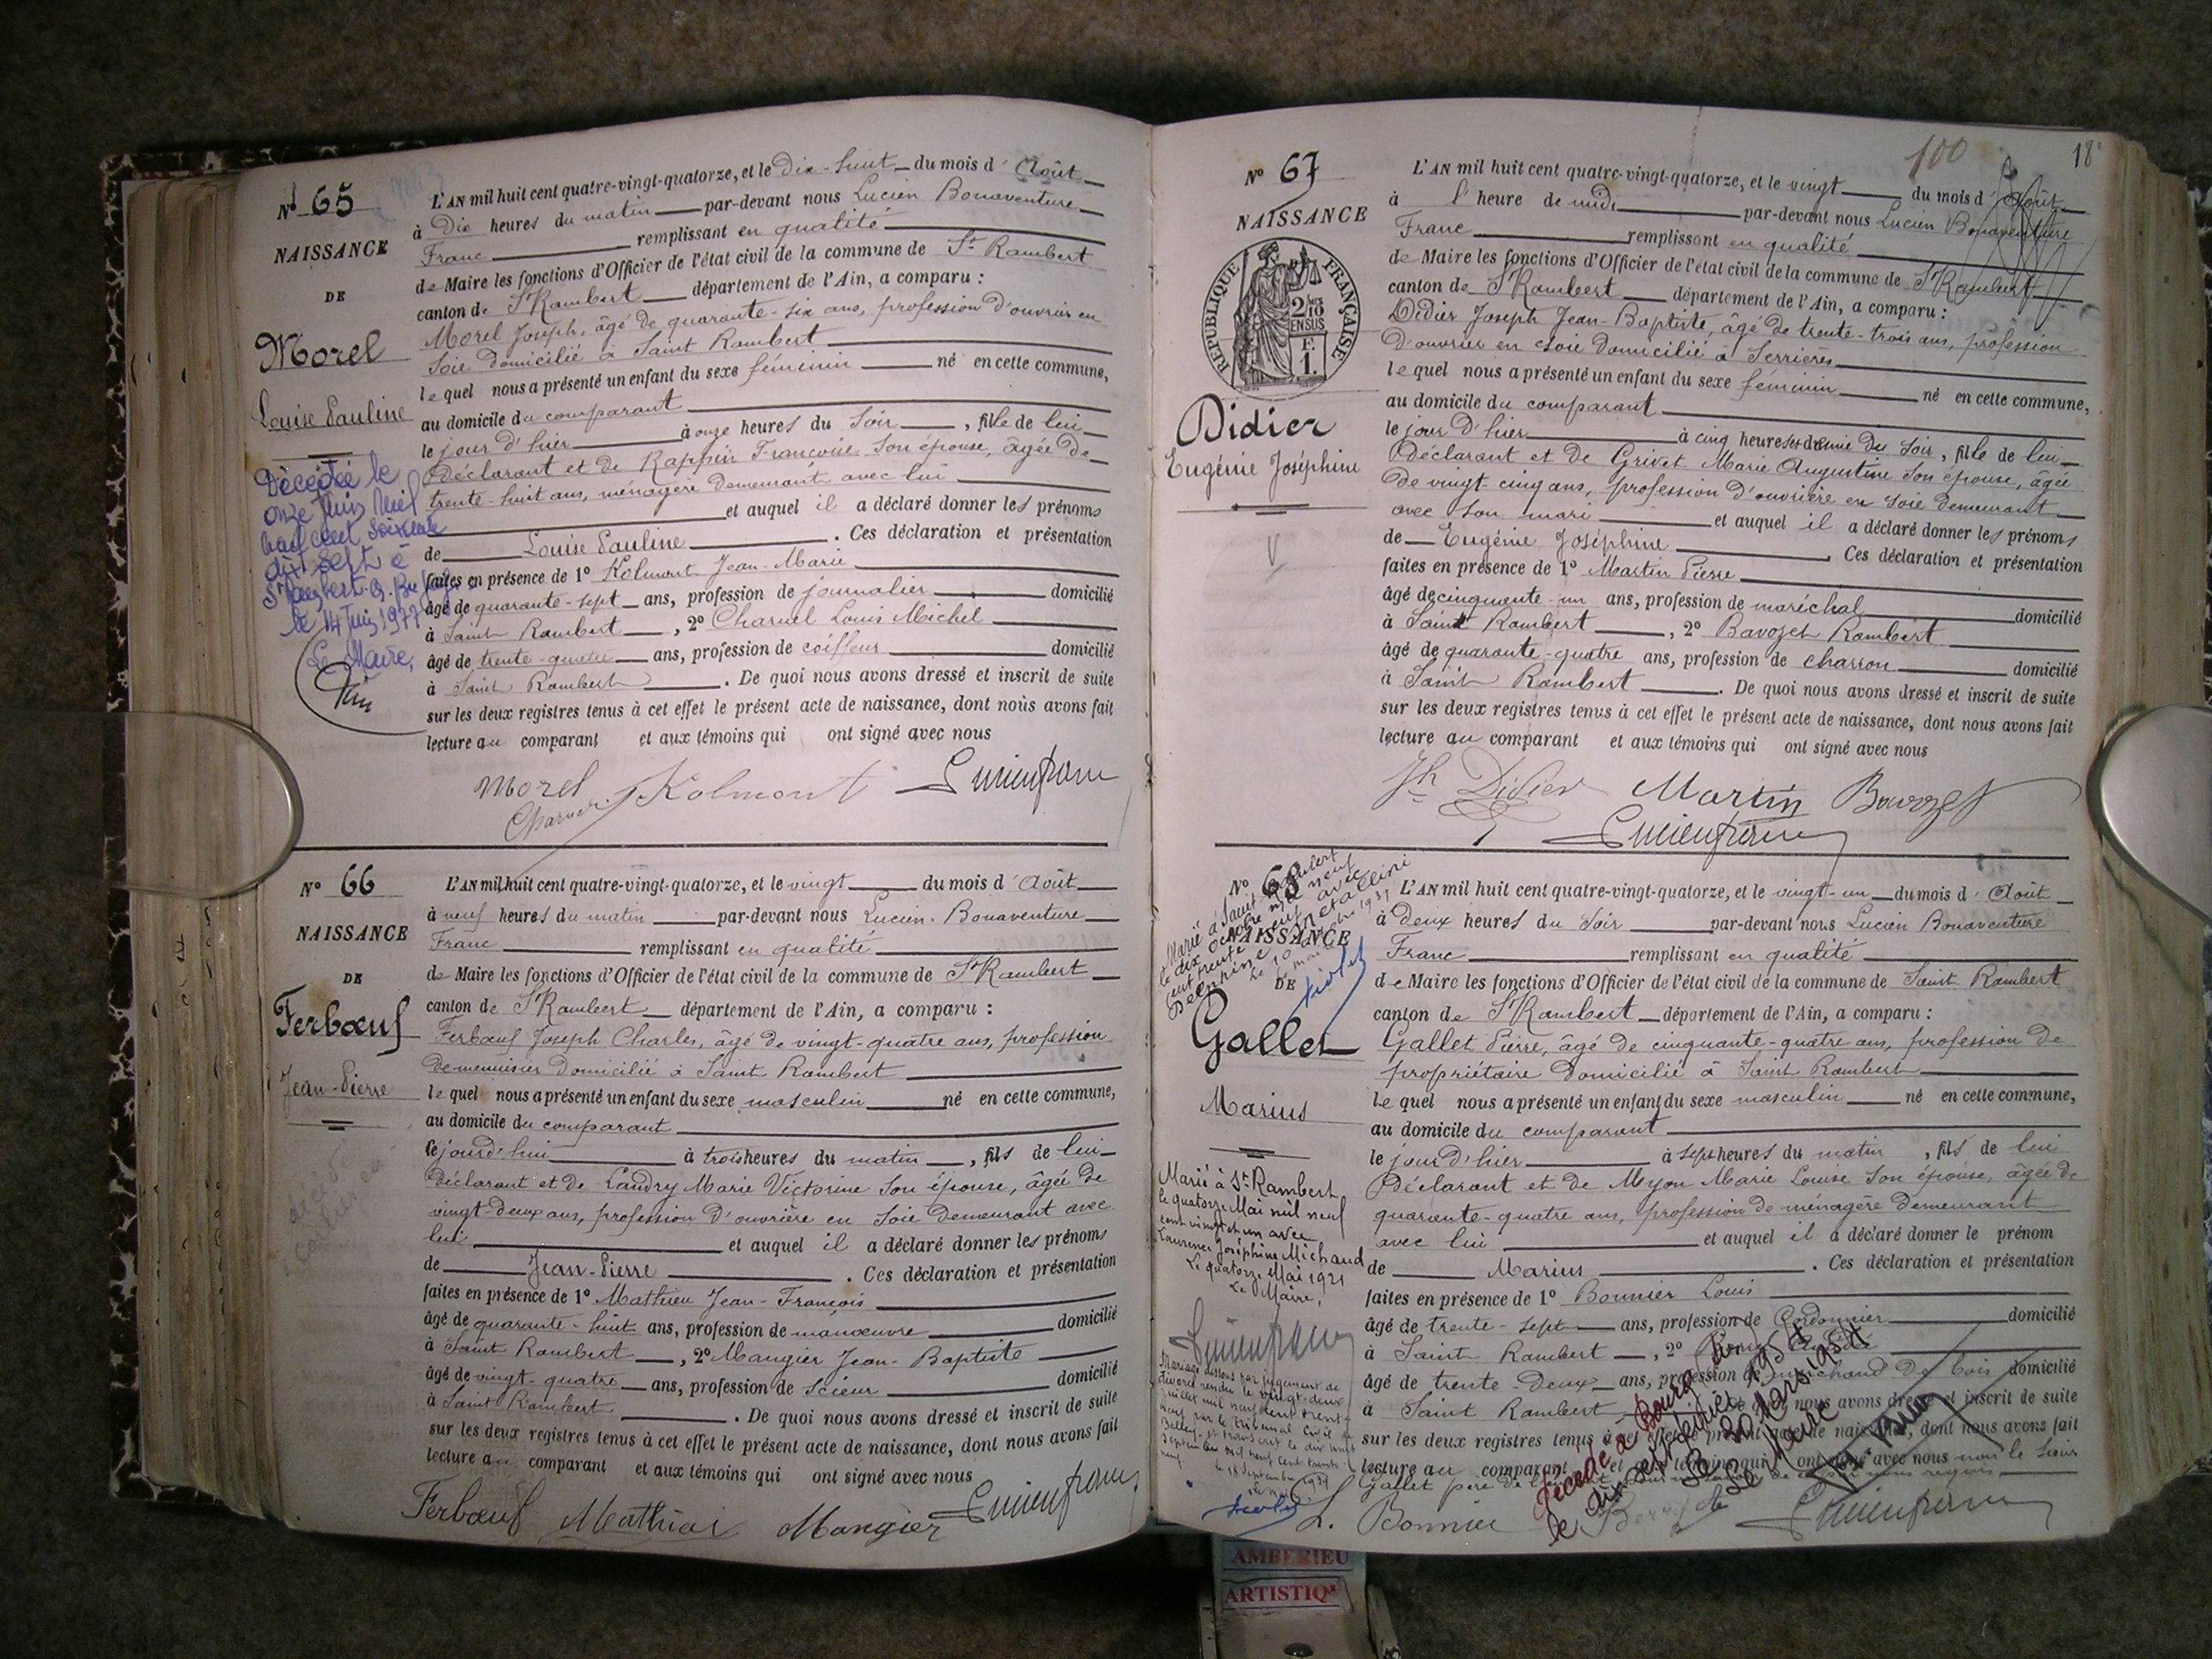 Nº 65
NAISSANCE
DE
Morel
Louise Pauline
Décédée le
onze Juin Mil
neuf cent soixante
dix sept à
le 14 Juin 1977
Le Maire,
L'AN mil huit cent quatre-vingt-quatorze, et le Dix-huit du mois d'Août
à Dix heures du matin par-devant nous Lucien Bonaventure
Franc remplissant en qualité
de Maire les fonctions d'Officier de l'état civil de la commune de St Rambert
canton de St Rambert département de l'Ain, a comparu :
Morel Joseph, âgé de quarante-six ans, profession d'ouvrier en
soie domicilié à Saint Rambert
lequel nous a présenté un enfant du sexe féminin né en cette commune,
au domicile du comparant
le jour d'hier à onze heures du soir, fille de lui
déclarant et de Rappin Françoise son épouse, âgée de
trente-huit ans, ménagère demeurant avec lui
et auquel il a déclaré donner les prénoms
de Louise Pauline. Ces déclaration et présentation
faites en présence de 1º Kolmont Jean-Marie
âgé de quarante-sept ans, profession de journalier domicilié
à Saint Rambert, 2º Charvel Louis Michel
âgé de trente-quatre ans, profession de coiffeur domicilié
à Saint Rambert. De quoi nous avons dressé et inscrit de suite
sur les deux registres tenus à cet effet le présent acte de naissance, dont nous avons fait
lecture au comparant et aux témoins qui ont signé avec nous
Morel Kolmont Lucien Franc
Nº 66
NAISSANCE
DE
Ferbœuf
Jean-Pierre
L'AN mil huit cent quatre-vingt-quatorze, et le vingt du mois d'Août
à neuf heures du matin par-devant nous Lucien Bonaventure
Franc remplissant en qualité
de Maire les fonctions d'Officier de l'état civil de la commune de St Rambert
canton de St Rambert département de l'Ain, a comparu :
Ferbœuf Joseph Charles, âgé de vingt-quatre ans, profession
de menuisier domicilié à Saint Rambert
lequel nous a présenté un enfant du sexe masculin né en cette commune,
au domicile du comparant
cejourd'hui à trois heures du matin, fils de lui
déclarant et de Landry Marie Victorine son épouse, âgée de
vingt-deux ans, profession d'ouvrière en soie demeurant avec
lui et auquel il a déclaré donner les prénoms
de Jean-Pierre. Ces déclaration et présentation
faites en présence de 1º Mathieu Jean-François
âgé de quarante-huit ans, profession de manœuvre domicilié
à Saint Rambert, 2º Mangier Jean-Baptiste
âgé de vingt-quatre ans, profession de scieur domicilié
à Saint Rambert. De quoi nous avons dressé et inscrit de suite
sur les deux registres tenus à cet effet le présent acte de naissance, dont nous avons fait
lecture au comparant et aux témoins qui ont signé avec nous
Ferbœuf Mathieu Mangier Lucien Franc
100
18
Nº 67
NAISSANCE
REPUBLIQUE FRANÇAISE
2/10 EN SUS
F. 1.
Didier
Eugénie Joséphine
L'AN mil huit cent quatre-vingt-quatorze, et le vingt du mois d'Août
à l'heure de midi par-devant nous Lucien Bonaventure
Franc remplissant en qualité
de Maire les fonctions d'Officier de l'état civil de la commune de St Rambert
canton de St Rambert département de l'Ain, a comparu :
Didier Joseph Jean-Baptiste, âgé de trente-trois ans, profession
d'ouvrier en soie domicilié à Serrières
lequel nous a présenté un enfant du sexe féminin né en cette commune,
au domicile du comparant
le jour d'hier à cinq heures et demie du soir, fille de lui
déclarant et de Grivet Marie Augustine son épouse, âgée
de vingt-cinq ans, profession d'ouvrière en soie demeurant
avec son mari et auquel il a déclaré donner les prénoms
de Eugénie Joséphine. Ces déclaration et présentation
faites en présence de 1º Martin Pierre
âgé de cinquante-un ans, profession de maréchal domicilié
à Saint Rambert, 2º Bavozet Rambert
âgé de quarante-quatre ans, profession de charron domicilié
à Saint Rambert. De quoi nous avons dressé et inscrit de suite
sur les deux registres tenus à cet effet le présent acte de naissance, dont nous avons fait
lecture au comparant et aux témoins qui ont signé avec nous
Jh Didier Martin Bavozet
Lucien Franc
Nº 68
NAISSANCE
DE
Gallet
Marius
Marié à St Rambert
le quatorze Mai mil neuf
cent vingt et un avec
Laurence Joséphine Michaud
Le quatorze Mai 1921
Le Maire,
Lucien Franc
Mariage dissous par jugement de
divorce rendu le vingt-deux
juillet mil neuf cent trente
L'AN mil huit cent quatre-vingt-quatorze, et le vingt-un du mois d'Août
à deux heures du soir par-devant nous Lucien Bonaventure
Franc remplissant en qualité
de Maire les fonctions d'Officier de l'état civil de la commune de Saint Rambert
canton de St Rambert département de l'Ain, a comparu :
Gallet Pierre, âgé de cinquante-quatre ans, profession de
propriétaire domicilié à Saint Rambert
lequel nous a présenté un enfant du sexe masculin né en cette commune,
au domicile du comparant
le jour d'hier à sept heures du matin, fils de lui
déclarant et de Myon Marie Louise son épouse, âgée de
quarante-quatre ans, profession de ménagère demeurant
avec lui et auquel il a déclaré donner le prénom
de Marius. Ces déclaration et présentation
faites en présence de 1º Bonnier Louis
âgé de trente-sept ans, profession de Cordonnier domicilié
à Saint Rambert, 2º
âgé de trente-deux ans, profession de marchand de bois domicilié
à Saint Rambert De quoi nous avons dressé et inscrit de suite
sur les deux registres tenus à cet effet le présent acte de naissance, dont nous avons fait
lecture au comparant et aux témoins qui ont signé avec nous
Décédé à Bourg
Le 20 Mars 1954
Le Maire
L. Bonnier Lucien Franc
AMBERIEU
ARTISTIQ